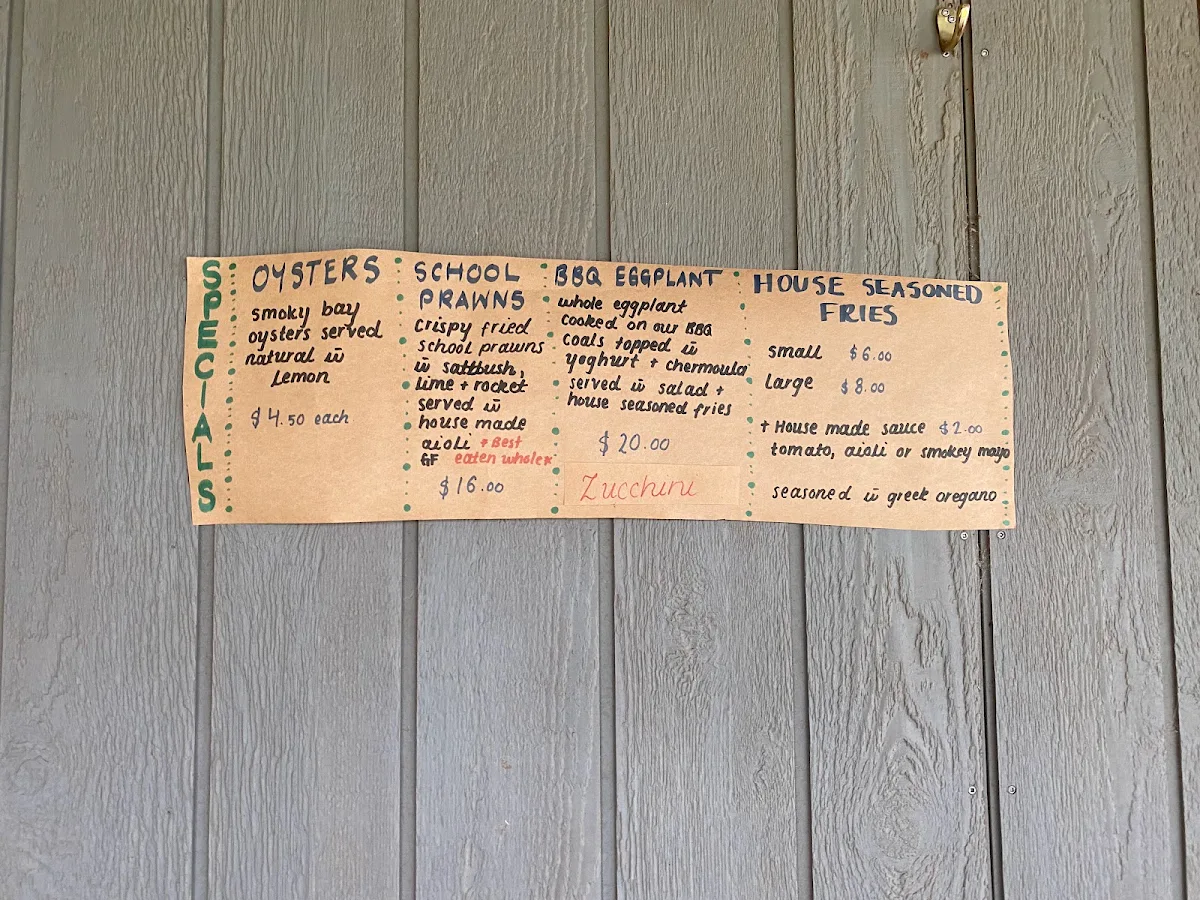 SPECIALS
OYSTERS
smoky bay
oysters served
natural w̄
Lemon
$4.50 each
SCHOOL
PRAWNS
crispy fried
school prawns
w̄ saltbush,
lime + rocket
served w̄
house made
aioli + Best
GF eaten whole*
$16.00
BBQ EGGPLANT
whole eggplant
cooked on our BBQ
coals topped w̄
yoghurt + chermoula
served w̄ salad +
house seasoned fries
$20.00
Zucchini
HOUSE SEASONED
FRIES
small $6.00
large $8.00
+ House made sauce $2.00
tomato, aioli or smokey mayo
seasoned w̄ greek oregano